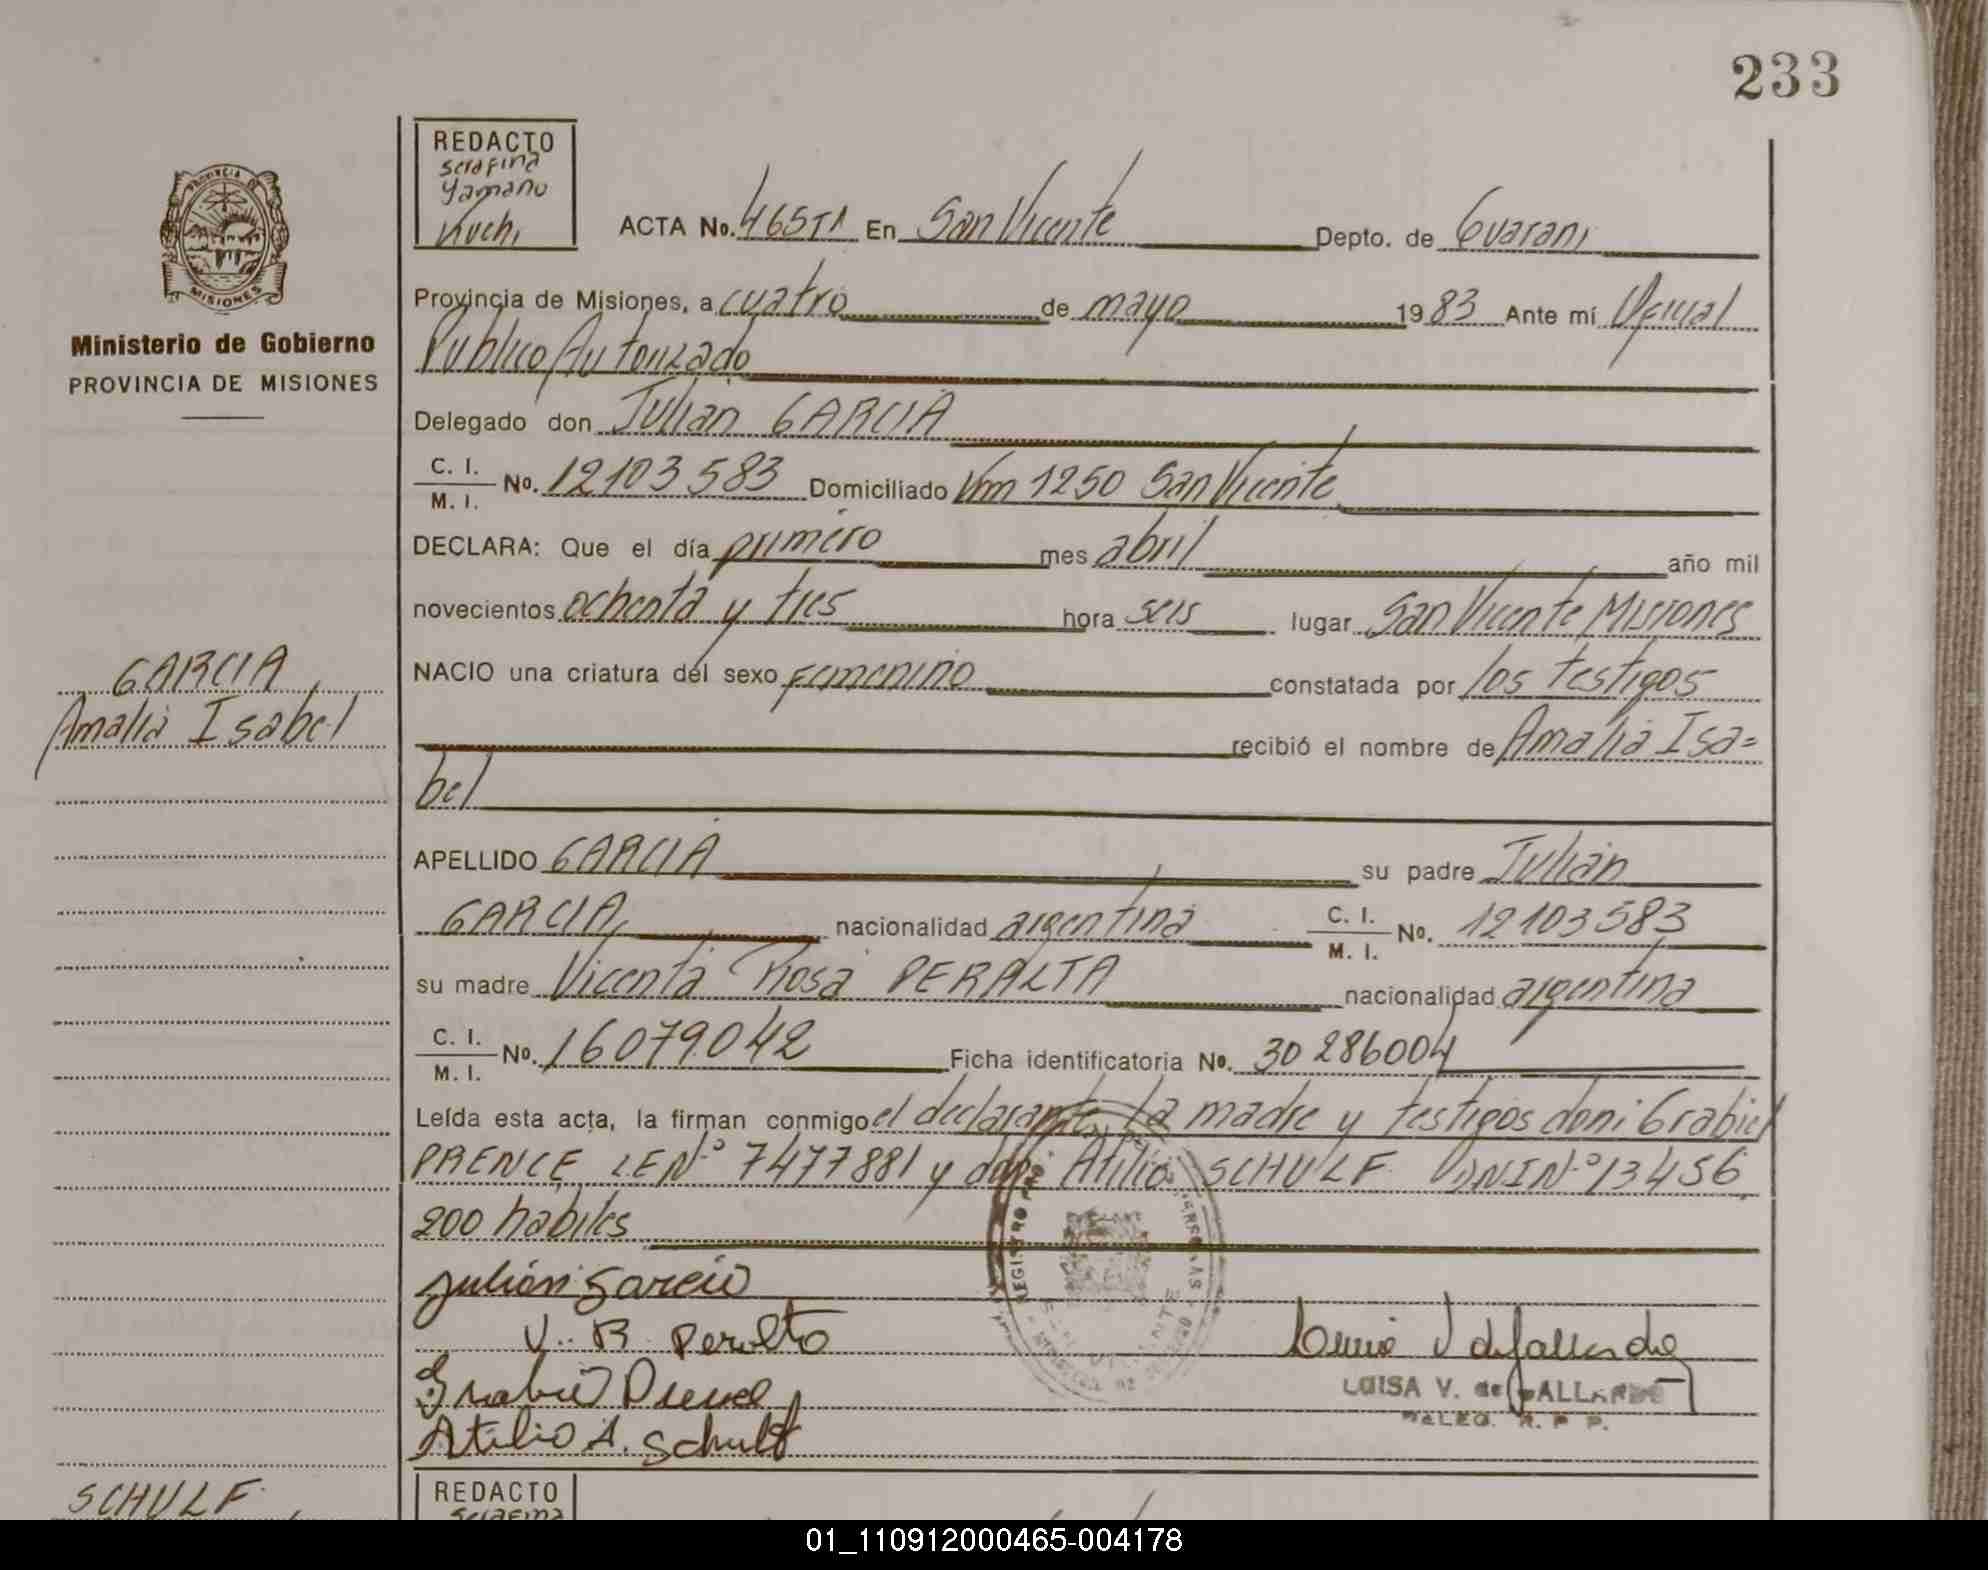 233
REDACTO
Serafina
Yamanu
Kuchi
ACTA No. 465 T1 En San Vicente Depto. de Guarani
Provincia de Misiones, a cuatro de mayo 1983 Ante mí Oficial
Publico Autorizado
Delegado don Julian GARCIA
C. I.
M. I. No. 12103583 Domiciliado Km 1250 San Vicente
DECLARA: Que el día primero mes abril año mil
novecientos ochenta y tres hora seis lugar San Vicente Misiones
NACIO una criatura del sexo femenino constatada por los testigos
recibió el nombre de Amalia Isa=
bel
APELLIDO GARCIA su padre Julian
GARCIA nacionalidad argentina C. I.
M. I. No. 12103583
su madre Vicenta Rosa PERALTA nacionalidad argentina
C. I.
M. I. No. 16079.042 Ficha identificatoria No. 30286004
Leída esta acta, la firman conmigo el declarante, la madre y testigos don: Grabiel
PRENCE LE Nº 7477881 y don Atilio SCHULF DNI Nº 13456
200 habiles
Julián García
V. R. Peralta
Atilio A. Schulf
LUISA V. de GALLARDO
DELEG. R. P. P.
PROVINCIA DE
MISIONES
Ministerio de Gobierno
PROVINCIA DE MISIONES
GARCIA
Amalia Isabel
SCHULF
REDACTO
Serafina
01_110912000465-004178